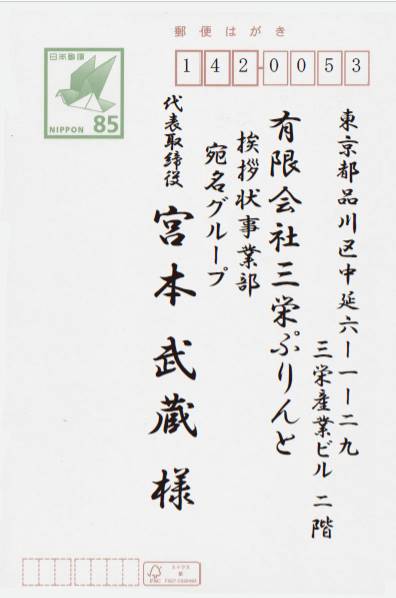 郵便はがき
日本郵便
NIPPON 85
142-0053
東京都品川区中延六ー一ー二九
三栄産業ビル 二階
有限会社三栄ぷりんと
挨拶状事業部
宛名グループ
代表取締役
宮本武蔵様
ミックス
紙
FSC